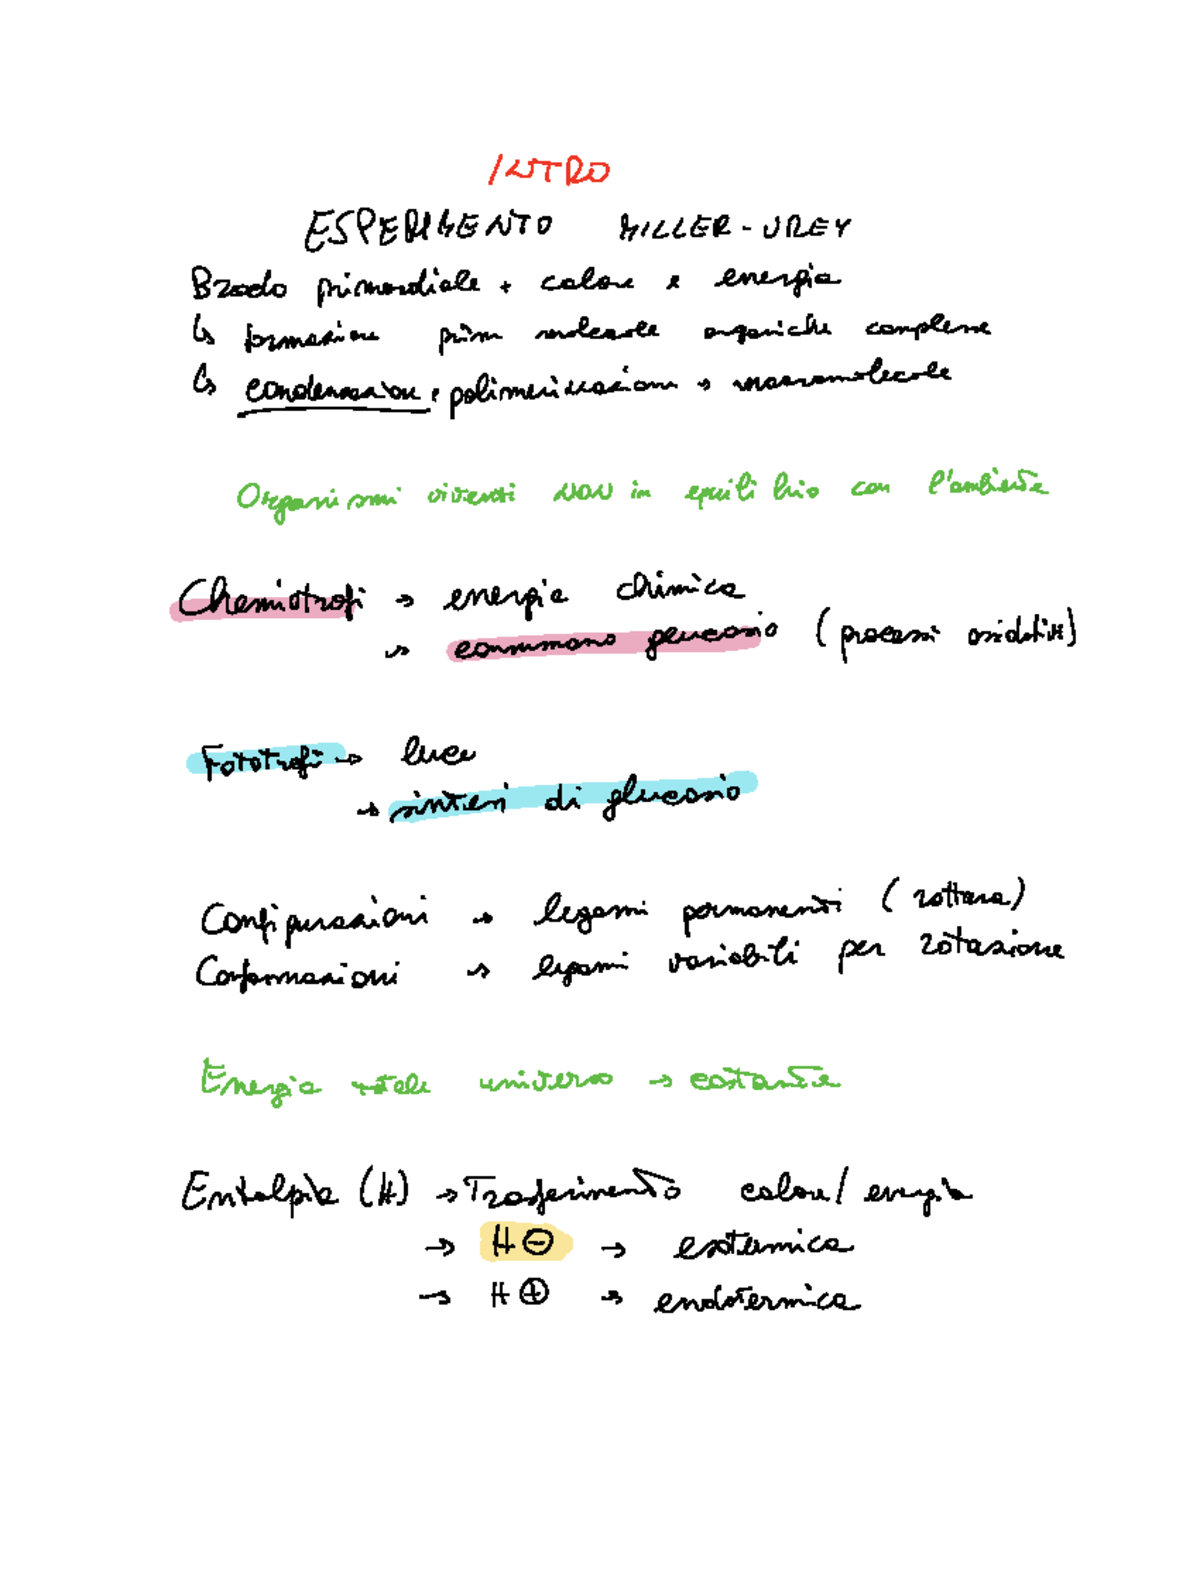 INTRO
ESPERIMENTO MILLER-UREY
Brodo primordiale + calore e energia
↳ formazione prime molecole organiche complesse
↳ condensazione e polimerizzazione → macromolecole
Organismi viventi NON in equilibrio con l'ambiente
Chemiotrofi → energia chimica
→ consumano glucosio (processi ossidativi)
Fototrofi → luce
→ sintesi di glucosio
Configurazioni → legami permanenti (rottura)
Conformazioni → legami variabili per rotazione
Energia totale universo → costante
Entalpia (H) → Trasferimento calore/energia
→ H ⊖ → esotermica
→ H ⊕ → endotermica